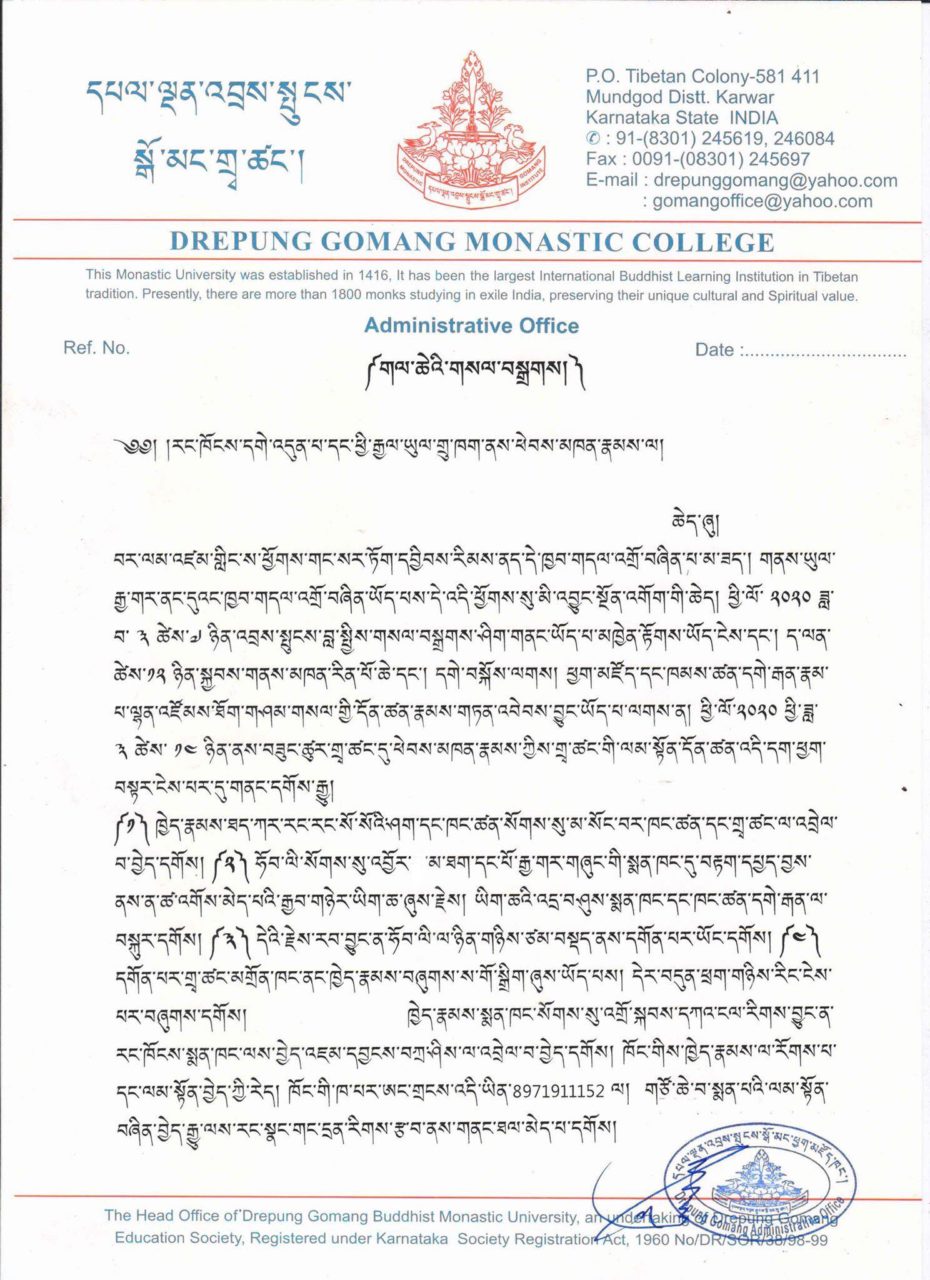 དཔལ་ལྡན་འབྲས་སྤུངས་
སྒོ་མང་གྲྭ་ཚང་།
P.O. Tibetan Colony-581 411
Mundgod Distt. Karwar
Karnataka State INDIA
✆ : 91-(8301) 245619, 246084
Fax : 0091-(08301) 245697
E-mail : drepunggomang@yahoo.com
: gomangoffice@yahoo.com
DREPUNG GOMANG MONASTIC INSTITUTE
དཔལ་ལྡན་འབྲས་སྤུངས་སྒོ་མང་གྲྭ་ཚང་།
DREPUNG GOMANG MONASTIC COLLEGE
This Monastic University was established in 1416, It has been the largest International Buddhist Learning Institution in Tibetan
tradition. Presently, there are more than 1800 monks studying in exile India, preserving their unique cultural and Spiritual value.
Administrative Office
Ref. No.
Date :................................
༼གལ་ཆེའི་གསལ་བསྒྲགས།༽
༄༅། །རང་ཁོངས་དགེ་འདུན་པ་དང་ཕྱི་རྒྱལ་ཡུལ་གྲུ་ཁག་ནས་ཕེབས་མཁན་རྣམས་ལ།
ཆེད་ཞུ།
བར་ལམ་འཛམ་གླིང་ས་ཕྱོགས་གང་སར་ཏོག་དབྱིབས་རིམས་ནད་དེ་ཁྱབ་གདལ་འགྲོ་བཞིན་པ་མ་ཟད། གནས་ཡུལ་
རྒྱ་གར་ནང་དུའང་ཁྱབ་གདལ་འགྲོ་བཞིན་ཡོད་པས་དེ་འདི་ཕྱོགས་སུ་མི་འབྱུང་སྔོན་འགོག་གི་ཆེད། ཕྱི་ལོ་ ༢༠༢༠ ཟླ་
བ་ ༣ ཚེས་༧ ཉིན་འབྲས་སྤུངས་བླ་སྤྱིས་གསལ་བསྒྲགས་ཤིག་གནང་ཡོད་པ་མཁྱེན་རྟོགས་ཡོད་ངེས་དང་། ད་ལན་
ཚེས་༡༢ ཉིན་སྐྱབས་གནས་མཁན་རིན་པོ་ཆེ་དང་། དགེ་བསྐོས་ལགས། ཕྱག་མཛོད་དང་ཁམས་ཚན་དགེ་རྒན་རྣམ་
པ་ལྷན་འཛོམས་ཐོག་གཤམ་གསལ་གྱི་དོན་ཚན་རྣམས་གཏན་འབེབས་བྱུང་ཡོད་པ་ལགས་ན། ཕྱི་ལོ་༢༠༢༠ ཕྱི་ཟླ་
༣ ཚེས་ ༡༤ ཉིན་ནས་བཟུང་ཚུར་གྲྭ་ཚང་དུ་ཕེབས་མཁན་རྣམས་ཀྱིས་གྲྭ་ཚང་གི་ལམ་སྟོན་དོན་ཚན་འདི་དག་ཕྱག་
བསྟར་ངེས་པར་དུ་གནང་དགོས་རྒྱུ།
༼༡༽ ཁྱེད་རྣམས་ཐད་ཀར་རང་རང་སོ་སོའི་ཤག་དང་ཁང་ཚན་སོགས་སུ་མ་སོང་བར་ཁང་ཚན་དང་གྲྭ་ཚང་ལ་འབྲེལ་
བ་བྱེད་དགོས། ༼༢༽ ཧོབ་ལི་སོགས་སུ་འབྱོར་ མ་ཐག་དང་པོ་རྒྱ་གར་གཞུང་གི་སྨན་ཁང་དུ་བརྟག་དཔྱད་བྱས་
ནས་ན་ཚ་འགོས་མེད་པའི་རྒྱབ་གཉེར་ཡིག་ཆ་ཞུས་རྗེས། ཡིག་ཆའི་འདྲ་བཤུས་སྨན་ཁང་དང་ཁང་ཚན་དགེ་རྒན་ལ་
བསྐུར་དགོས། ༼༣༽ དེའི་རྗེས་རབ་བྱུང་ན་ཧོབ་ལི་ལ་ཉིན་གཉིས་ཙམ་བསྡད་ནས་དགོན་པར་ཡོང་དགོས། ༼༤༽
དགོན་པར་གྲྭ་ཚང་མགྲོན་ཁང་ནང་ཁྱེད་རྣམས་བཞུགས་ས་གོ་སྒྲིག་ཞུས་ཡོད་པས། དེར་བདུན་ཕྲག་གཉིས་རིང་ངེས་
པར་བཞུགས་དགོས། ཁྱེད་རྣམས་སྨན་ཁང་སོགས་སུ་འགྲོ་སྐབས་དཀའ་ངལ་རིགས་བྱུང་ན་
རང་ཁོངས་སྨན་ཁང་ལས་བྱེད་འཇམ་དབྱངས་བཀྲ་ཤིས་ལ་འབྲེལ་བ་བྱེད་དགོས། ཁོང་གིས་ཁྱེད་རྣམས་ལ་རོགས་པ་
དང་ལམ་སྟོན་བྱེད་ཀྱི་རེད། ཁོང་གི་ཁ་པར་ཨང་གྲངས་འདི་ཡིན་8971911152 ལ། གཙོ་ཆེ་བ་སྨན་པའི་ལམ་སྟོན་
བཞིན་བྱེད་རྒྱུ་ལས་རང་སྣང་གང་དྲན་རིགས་རྩ་བ་ནས་གནང་ཐལ་མེད་པ་དགོས།
དཔལ་ལྡན་འབྲས་སྤུངས་སྒོ་མང་ཕྱག་མཛོད་ཁང་།
Drepung Gomang Administrative Office
The Head Office of Drepung Gomang Buddhist Monastic University, an undertaking of Drepung Gomang
Education Society, Registered under Karnataka Society Registration Act, 1960 No/DR/SOR/38/98-99